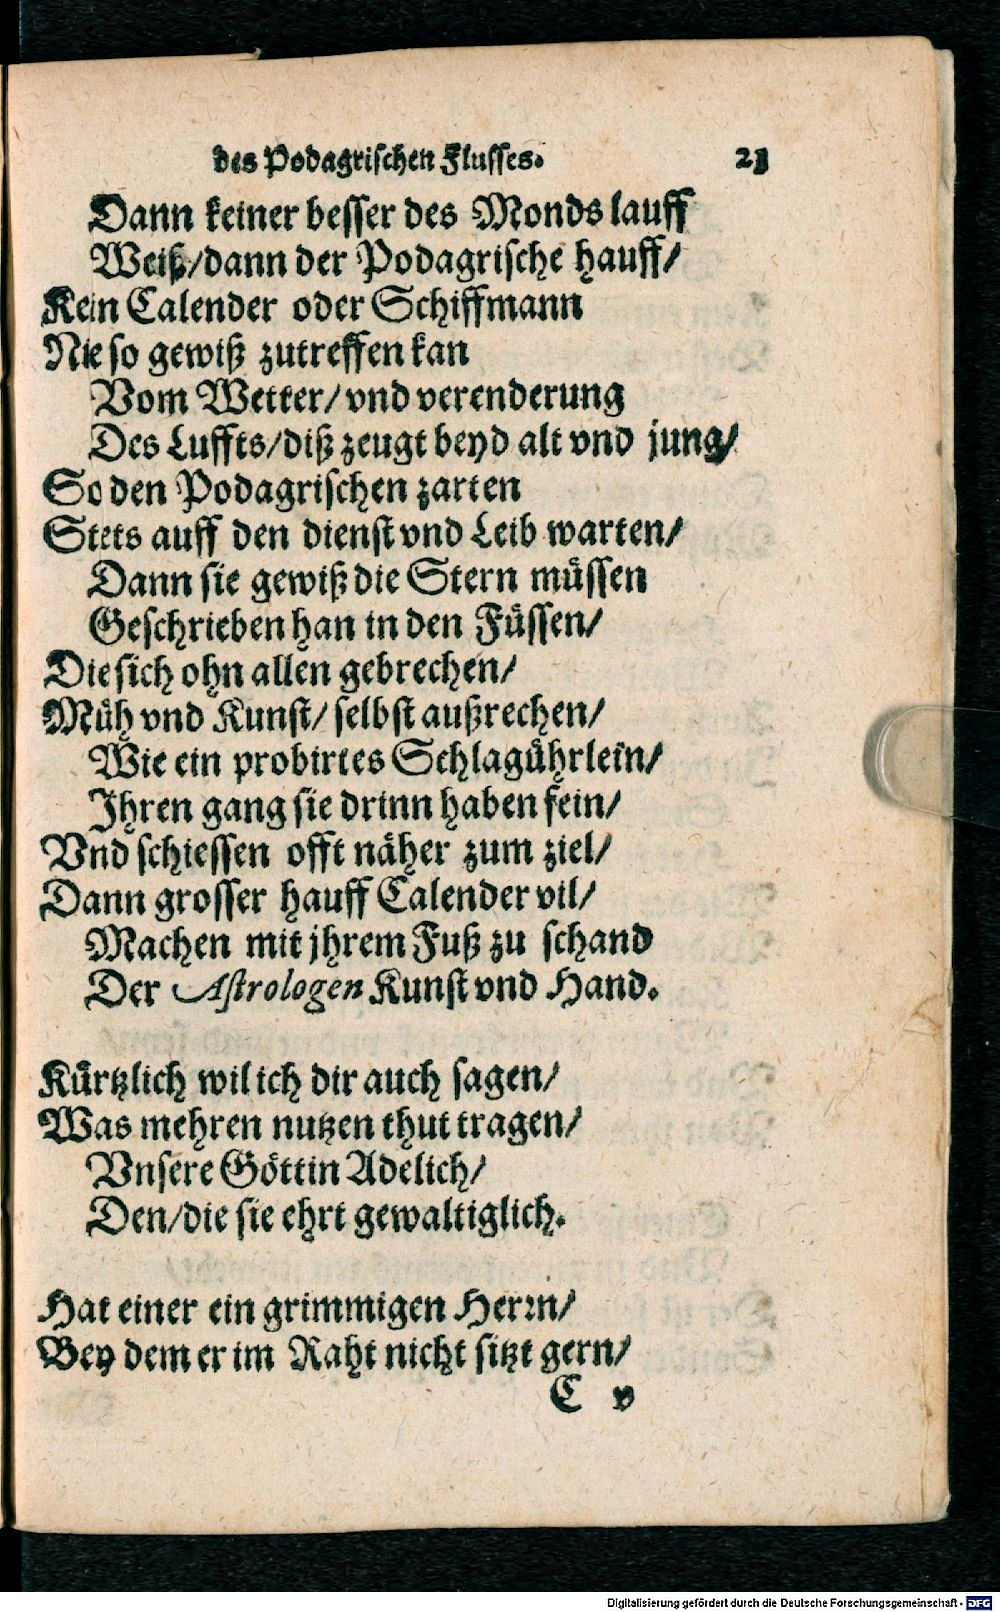 des Podagrischen Flusses. 21
Dann keiner besser des Monds lauff
Weiß/dann der Podagrische hauff/
Kein Calender oder Schiffmann
Nie so gewiß zutreffen kan
Vom Wetter/vnd verenderung
Des Luffts/diß zeugt beyd alt vnd jung/
So den Podagrischen zarten
Stets auff den dienst vnd Leib warten/
Dann sie gewiß die Stern müssen
Geschrieben han in den Füssen/
Die sich ohn allen gebrechen/
Müh vnd Kunst/ selbst außrechen/
Wie ein probirtes Schlagührlein/
Ihren gang sie drinn haben fein/
Vnd schiessen offt näher zum ziel/
Dann grosser hauff Calender vil/
Machen mit jhrem Fuß zu schand
Der Astrologen Kunst vnd Hand.
Kürtzlich wil ich dir auch sagen/
Was mehren nutzen thut tragen/
Vnsere Göttin Adelich/
Den/die sie ehrt gewaltiglich.
Hat einer ein grimmigen Herrn/
Bey dem er im Raht nicht sitzt gern/
C v
Digitalisierung gefördert durch die Deutsche Forschungsgemeinschaft - DFG